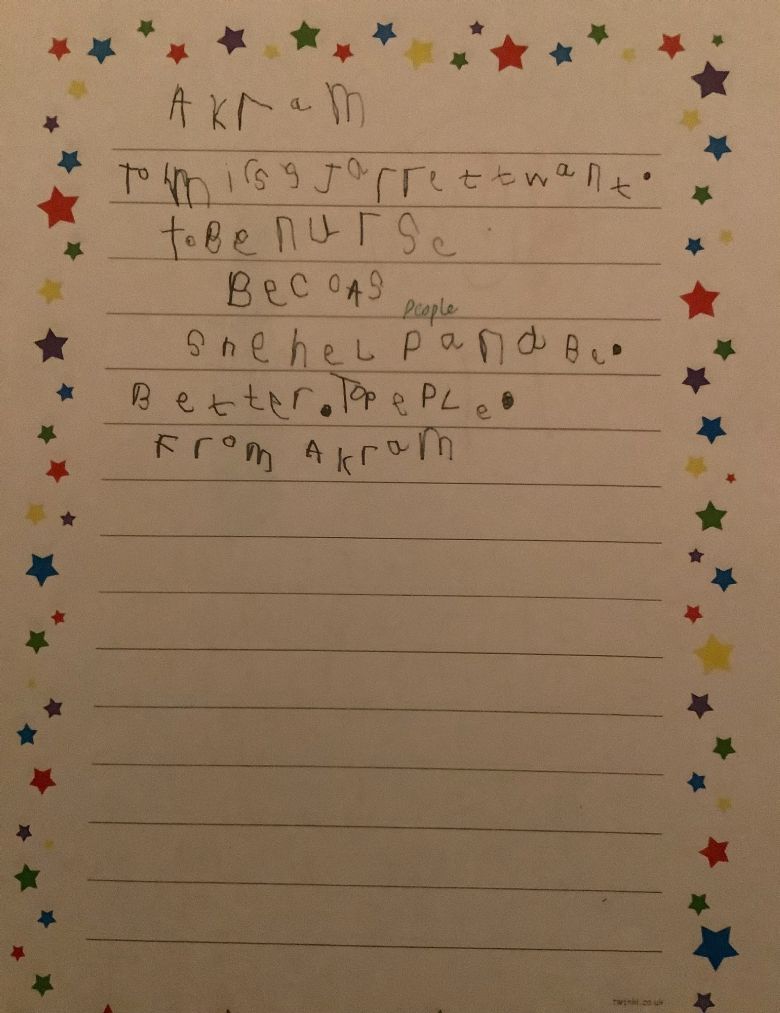 AkraM
To Miss Jarrett want.
to Be nurse
Becoas
People
She heL Pand Be.
Better. TopePLe.
From AkraM
twinkl.co.uk